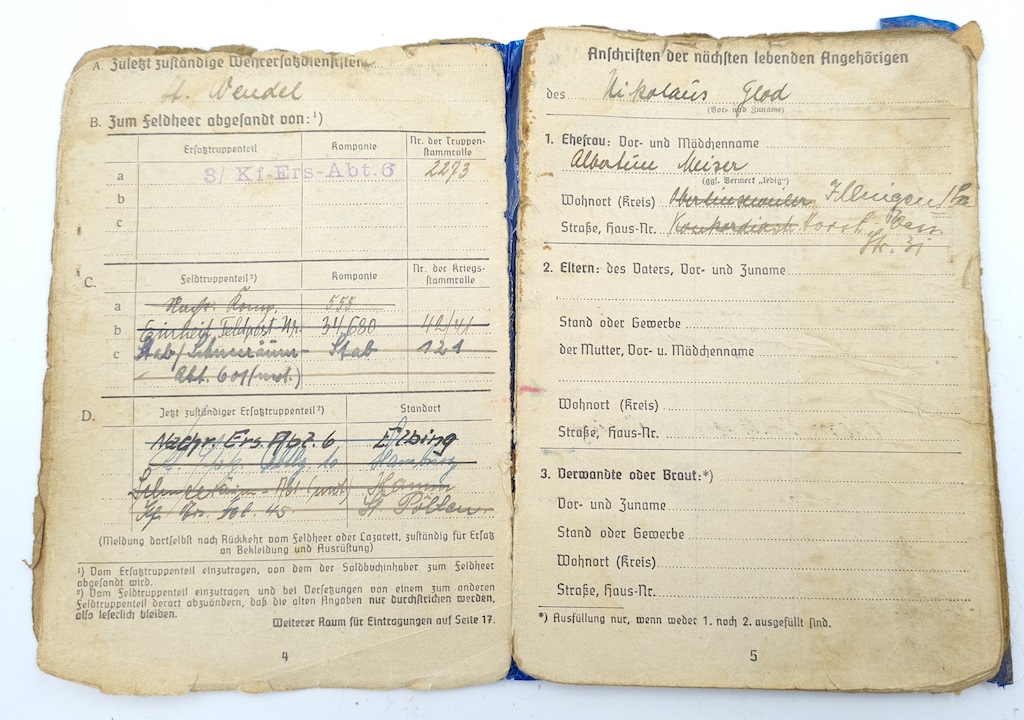 A. Zuletzt zuständige Wehrersatzdienststelle
St. Wendel
B. Zum Feldheer abgesandt von:¹)
Ersatztruppenteil Kompanie Nr. der Truppen-
stammrolle
a 3/ Kf-Ers-Abt. 6 2273
b
c
C. Feldtruppenteil²) Kompanie Nr. der Kriegs-
stammrolle
a Nachr. Komp. 555
b Einheit Feldpost Nr. 34680 42/41
c Stab/ Stab 121
Abt. 601 (mot.)
D. Jetzt zuständiger Ersatztruppenteil²) Standort
Nachr. Ers. Abt. 6 Elbing
Hamburg
(mot.) Hamm
Kf. Ers. Abt. 45 St. Pölten
(Meldung dortselbst nach Rückkehr vom Feldheer oder Lazarett, zuständig für Ersatz
an Bekleidung und Ausrüstung)
¹) Vom Ersatztruppenteil einzutragen, von dem der Soldbuchinhaber zum Feldheer
abgesandt wird.
²) Vom Feldtruppenteil einzutragen und bei Versetzungen von einem zum anderen
Feldtruppenteil derart abzuändern, daß die alten Angaben nur durchstrichen werden,
also leserlich bleiben.
Weiterer Raum für Eintragungen auf Seite 17.
4
Anschriften der nächsten lebenden Angehörigen
des Nikolaus Glod
(Vor- und Zuname)
1. Ehefrau: Vor- und Mädchenname
Albertin Meiser
(ggf. Vermerk „ledig“)
Wohnort (Kreis) Illingen
Straße, Haus-Nr. Horst-Wess
Str. 31
2. Eltern: des Vaters, Vor- und Zuname
Stand oder Gewerbe
der Mutter, Vor- u. Mädchenname
Wohnort (Kreis)
Straße, Haus-Nr.
3. Verwandte oder Braut:*)
Vor- und Zuname
Stand oder Gewerbe
Wohnort (Kreis)
Straße, Haus-Nr.
*) Ausfüllung nur, wenn weder 1. noch 2. ausgefüllt sind.
5